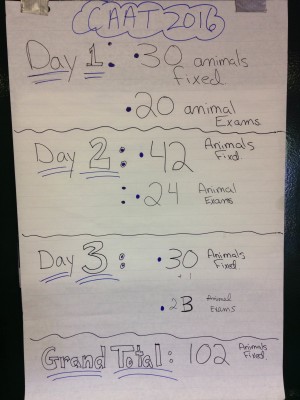 CAAT 2016
Day 1: • 30 animals
fixed
• 20 animal
Exams
Day 2: • 42 Animals
Fixed
• 24 Animal
Exams
Day 3: • 30 Animals
Fixed
+1
• 23 Animal
Exams
Grand Total: 102 Animals
Fixed.